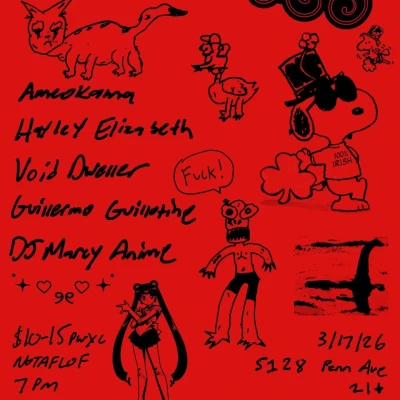 Ameokama
Harley Elizabeth
Void Dweller
Fuck!
100% IRISH
Guillermo Guillotine
DJ Marcy Anime
$10-15 pwyc
NOTAFLOF
7 PM
3/17/26
5128 Penn Ave
21+